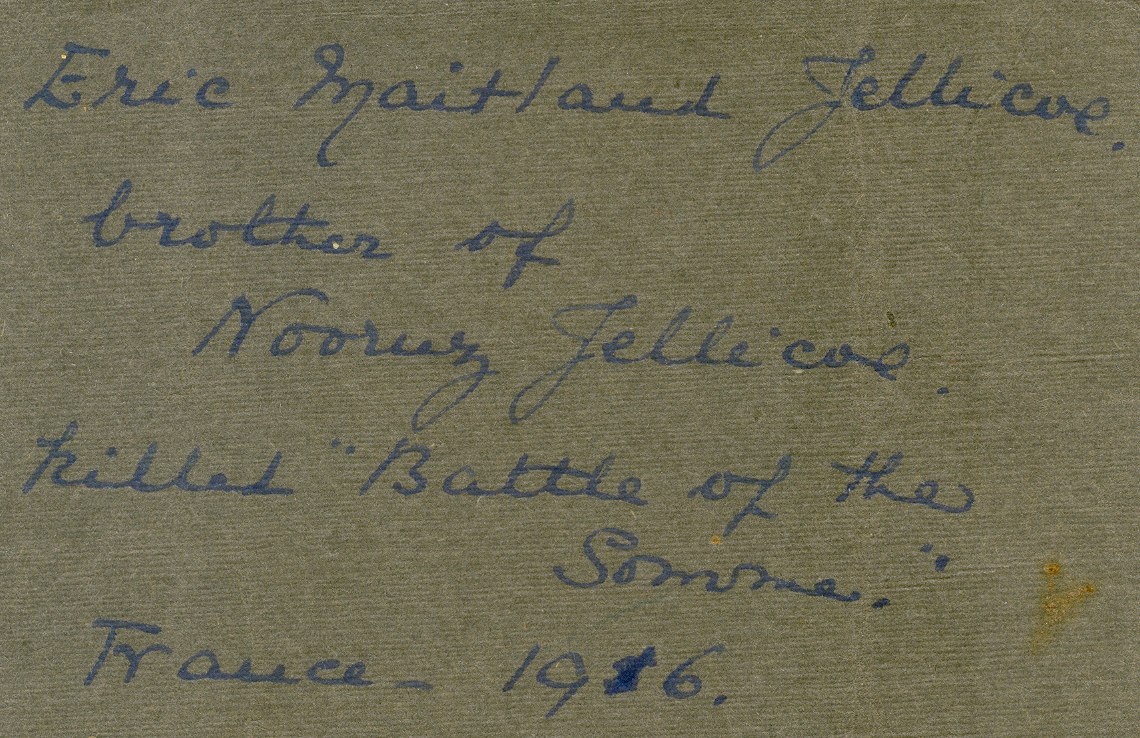 Eric Maitland Jellicoe.
brother of
Nooruz Jellicoe.
killed "Battle of the
Somme."
France - 1916.